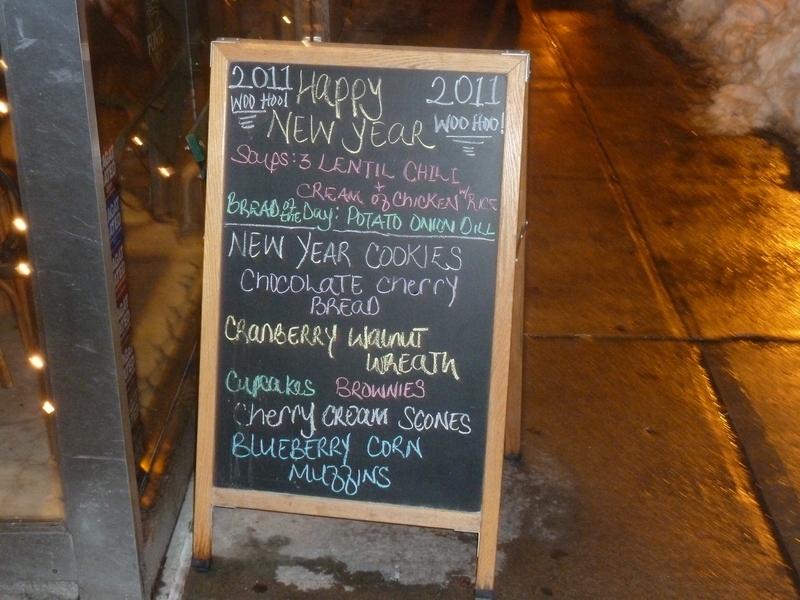 2011 HAPPY 2011
WOO HOO! NEW YEAR WOO HOO!
SOUPS: 3 LENTIL CHILI
+
CREAM OF CHICKEN W/ RICE
BREAD OF THE DAY: POTATO ONION DILL
NEW YEAR COOKIES
CHOCOLATE CHERRY
BREAD
CRANBERRY WALNUT
WREATH
CUPCAKES BROWNIES
CHERRY CREAM SCONES
BLUEBERRY CORN
MUFFINS